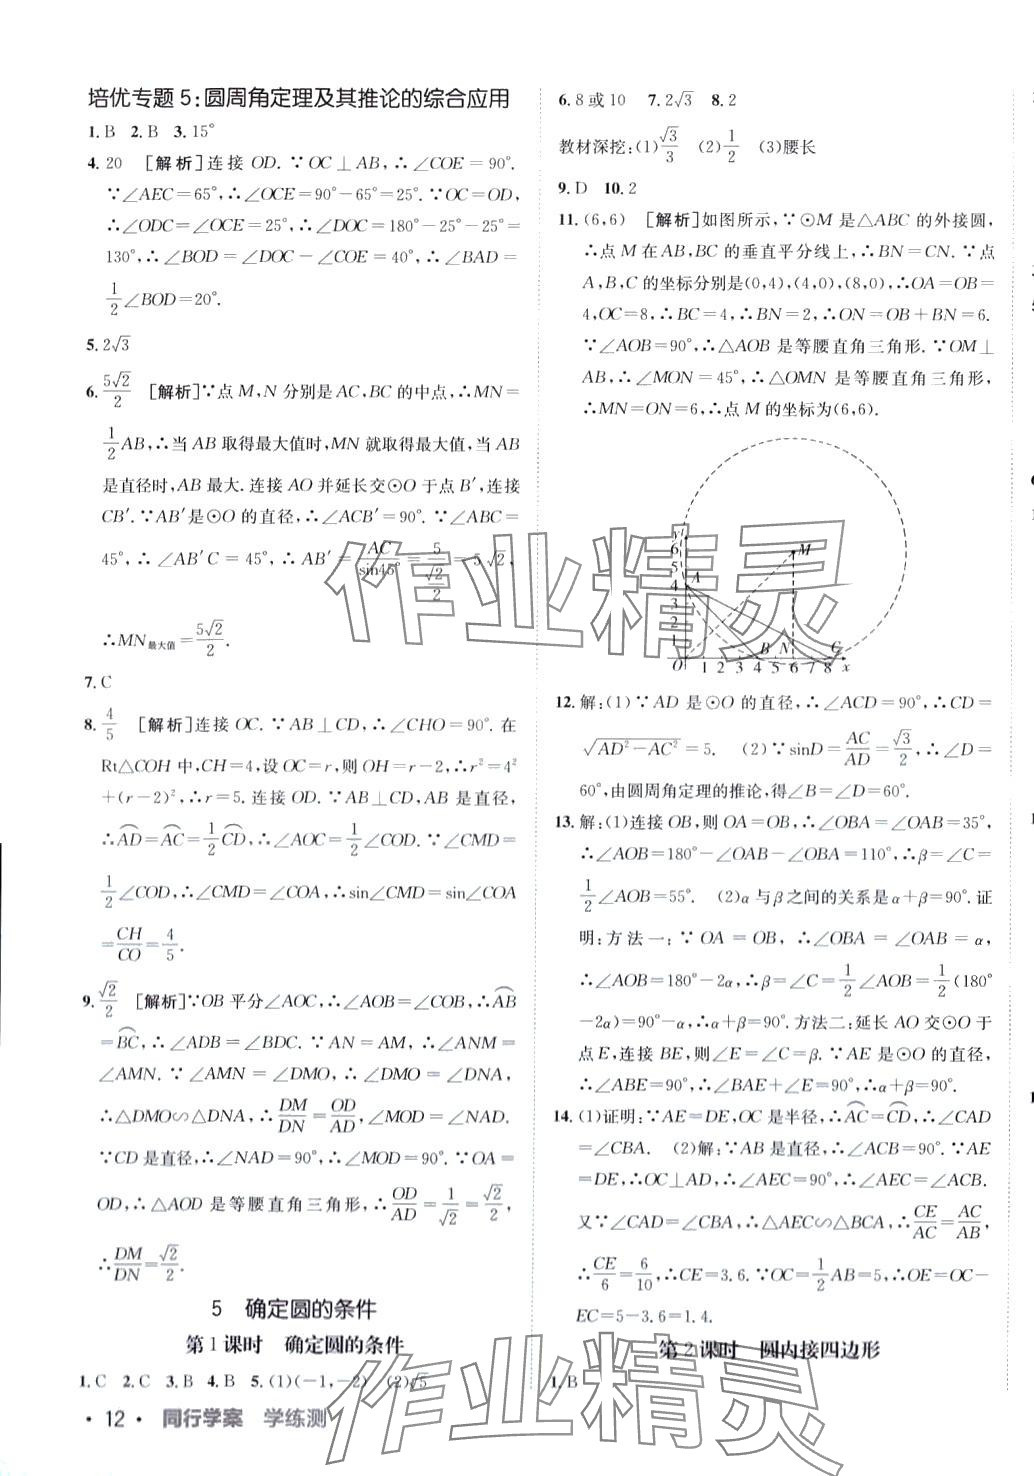 培优专题5:圆周角定理及其推论的综合应用
1.B 2.B 3.15°
4.20 [解析]连接OD.∵OC⊥AB,∴∠COE=90°.
∵∠AEC=65°,∴∠OCE=90°-65°=25°.∵OC=OD,
∴∠ODC=∠OCE=25°,∴∠DOC=180°-25°-25°=
130°,∴∠BOD=∠DOC-∠COE=40°,∴∠BAD=
1/2∠BOD=20°.
5.2√3
6.5√2/2 [解析]∵点M,N分别是AC,BC的中点,∴MN=
1/2AB,∴当AB取得最大值时,MN就取得最大值,当AB
是直径时,AB最大.连接AO并延长交⊙O于点B′,连接
CB′.∵AB′是⊙O的直径,∴∠ACB′=90°.∵∠ABC=
45°,∴∠AB′C=45°,∴AB′=AC/sin45°=5/(√2/2)=5√2,
∴MN最大值=5√2/2.
7.C
8.4/5 [解析]连接OC.∵AB⊥CD,∴∠CHO=90°.在
Rt△COH中,CH=4,设OC=r,则OH=r-2,∴r²=4²
+(r-2)²,∴r=5.连接OD.∵AB⊥CD,AB是直径,
∴⌒AD=⌒AC=1/2⌒CD,∴∠AOC=1/2∠COD.∵∠CMD=
1/2∠COD,∴∠CMD=∠COA,∴sin∠CMD=sin∠COA
=CH/CO=4/5.
9.√2/2 [解析]∵OB平分∠AOC,∴∠AOB=∠COB,∴⌒AB
=⌒BC,∴∠ADB=∠BDC.∵AN=AM,∴∠ANM=
∠AMN.∵∠AMN=∠DMO,∴∠DMO=∠DNA,
∴△DMO∽△DNA,∴DM/DN=OD/AD,∠MOD=∠NAD.
∵CD是直径,∴∠NAD=90°,∴∠MOD=90°.∵OA=
OD,∴△AOD是等腰直角三角形,∴OD/AD=1/√2=√2/2,
∴DM/DN=√2/2.
5 确定圆的条件
第1课时 确定圆的条件
1.C 2.C 3.B 4.B 5.(1)(-1,-2) (2)√5
·12· 同行学案 学练测
6.8或10 7.2√3 8.2
教材深挖:(1)√3/3 (2)1/2 (3)腰长
9.D 10.2
11.(6,6) [解析]如图所示,∵⊙M是△ABC的外接圆,
∴点M在AB,BC的垂直平分线上,∴BN=CN.∵点
A,B,C的坐标分别是(0,4),(4,0),(8,0),∴OA=OB=
4,OC=8,∴BC=4,∴BN=2,∴ON=OB+BN=6.
∵∠AOB=90°,∴△AOB是等腰直角三角形.∵OM⊥
AB,∴∠MON=45°,∴△OMN是等腰直角三角形,
∴MN=ON=6,∴点M的坐标为(6,6).
y
6
5
4
3
2
1
A
M
B N C
O 1 2 3 4 5 6 7 8 x
12.解:(1)∵AD是⊙O的直径,∴∠ACD=90°,∴CD=
√(AD²-AC²)=5. (2)∵sinD=AC/AD=√3/2,∴∠D=
60°,由圆周角定理的推论,得∠B=∠D=60°.
13.解:(1)连接OB,则OA=OB,∴∠OBA=∠OAB=35°,
∴∠AOB=180°-∠OAB-∠OBA=110°,∴β=∠C=
1/2∠AOB=55°. (2)α与β之间的关系是α+β=90°.证
明:方法一:∵OA=OB,∴∠OBA=∠OAB=α,
∴∠AOB=180°-2α,∴β=∠C=1/2∠AOB=1/2(180°
-2α)=90°-α,∴α+β=90°.方法二:延长AO交⊙O于
点E,连接BE,则∠E=∠C=β.∵AE是⊙O的直径,
∴∠ABE=90°,∴∠BAE+∠E=90°,∴α+β=90°.
14.(1)证明:∵AE=DE,OC是半径,∴⌒AC=⌒CD,∴∠CAD
=∠CBA. (2)解:∵AB是直径,∴∠ACB=90°.∵AE
=DE,∴OC⊥AD,∴∠AEC=90°,∴∠AEC=∠ACB.
又∵∠CAD=∠CBA,∴△AEC∽△BCA,∴CE/AC=AC/AB,
∴CE/6=6/10,∴CE=3.6.∵OC=1/2AB=5,∴OE=OC-
EC=5-3.6=1.4.
第2课时 圆内接四边形
1.B
作业精灵
作业精灵